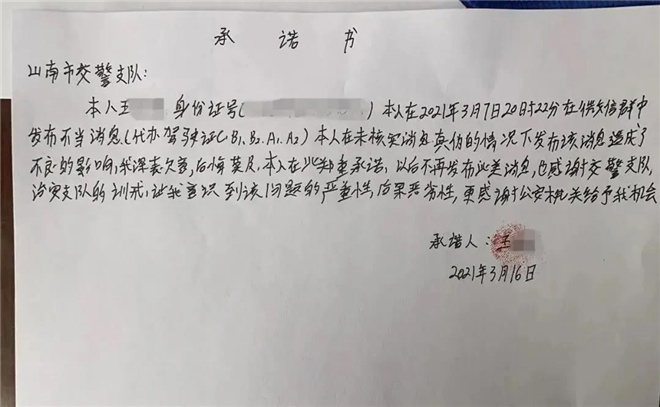 承诺书
山南市交警支队:
本人王 身份证号( )本人在2021年3月7日20时22分在供欠信群中
发布不当消息(代办驾驶证C.B1、B2.A1.A2)本人在未核实消息真伪的情况下发布该消息造成了
不良的影响,我深表欠意,后悔莫及.本人在此郑重承诺,以后不再发布此类消息,也感谢交警支队
治安支队的训戒,让我意识到该问题的严重性,后果恶劣性,更感谢公安机关给予我机会
承诺人:王
2021年3月16日